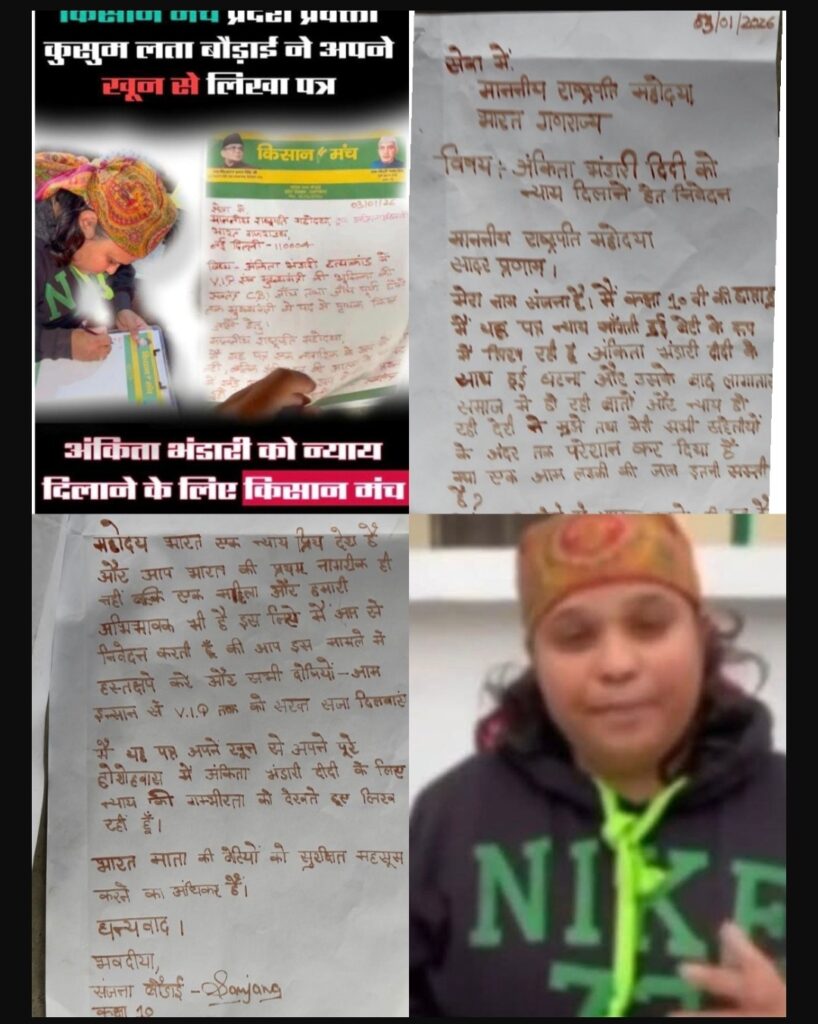 किसान मंच प्रदेश प्रवक्ता
कुसुम लता बौड़ाई ने अपने
खून से लिखा पत्र
किसान मंच
सेवा में,
03/01/26
माननीय राष्ट्रपति महोदया,
भारत गणराज्य,
नई दिल्ली - 110004
विषय - अंकिता भंडारी हत्याकांड में
V.I.P
CBI जाँच तथा
माननीय राष्ट्रपति महोदया,
अंकिता भंडारी को न्याय
दिलाने के लिए किसान मंच
03/01/2026
सेवा में,
माननीय राष्ट्रपति महोदया
भारत गणराज्य
विषय :- अंकिता भंडारी दिदी को
न्याय दिलाने हेतु निवेदन
माननीय राष्ट्रपति महोदया
सादर प्रणाम।
मेरा नाम संजना है। मैं कक्षा 10 वी की छात्रा हूँ
मैं यह पत्र न्याय माँगती हुई बेटी के रूप
में लिख रही हूँ अंकिता भंडारी दीदी के
साथ हुई घटना और उसके बाद लागातार
समाज मे हो रही बातों और न्याय हो
रही देरी ने मुझे तथा मेरी सभी सहेलीयों
के अंदर तक परेशान कर दिया है
क्या एक आम लड़की की जान इतनी सस्ती
है?
महोदय भारत एक न्याय प्रिय देश है
और आप भारत की प्रथम नागरीक ही
नहीं बल्कि एक महिला और हमारी
अभिभावक भी है इस लिये मैं आप से
निवेदन करती हूँ की आप इस मामले मे
हस्तक्षपे करे और सभी दोषियों - आम
इन्सान से V.I.P तक को सख्त सजा दिलवाएं
मैं यह पत्र अपने खून से अपने पूरे
होशोहवाश में अंकिता भंडारी दीदी के लिए
न्याय की गम्भीरता को देखते हुए लिख
रही हूँ।
भारत माता की बेटियों को सुरक्षित महसूस
करने का अधिकार है।
धन्यवाद।
भवदीया,
संजना बौडाई - Sanjana
कक्षा 10
NIKE